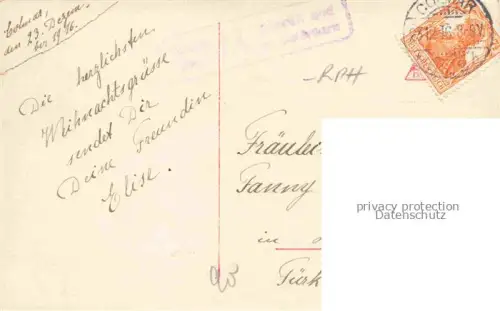 Colmar,
den 23. Dezem-
ber 1916.
Die herzlichsten
Weihnachtsgrüsse
sendet Dir
Deine Freundin
Elise.
COLMAR
Fräulei
Fanny
in
Türk
privacy protection
Datenschutz